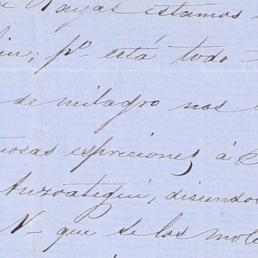 Rayas estamos
; pº está todo
de milagro nos
espreciones á
Anzoategui, disendo
N- que se los mole